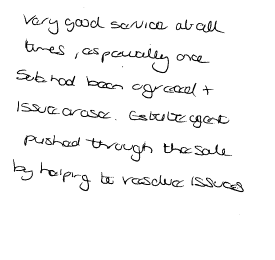 Very good service at all
times, especially once
Sale had been agreed +
issue arose. Estate agent
pushed through the sale
by helping to resolve issues